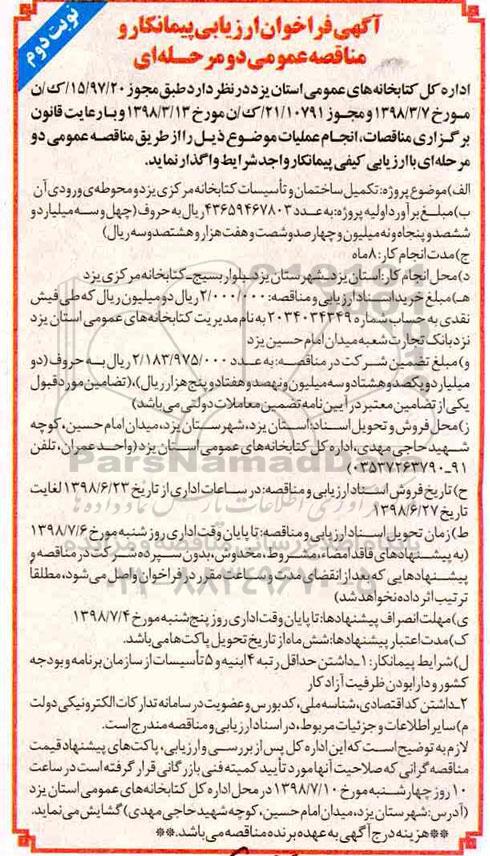 نوبت دوم
آگهی فراخوان ارزیابی پیمانکار و
مناقصه عمومی دو مرحله‌ای
اداره کل کتابخانه‌های عمومی استان یزد در نظر دارد طبق مجوز ۱۵/۹۷/۲۰/ک/ن
مورخ ۱۳۹۸/۳/۷ و مجوز ۲۱/۱۰۷۹۱/ک/ن مورخ ۱۳۹۸/۳/۱۳ و با رعایت قانون
برگزاری مناقصات، انجام عملیات موضوع ذیل را از طریق مناقصه عمومی دو
مرحله‌ای با ارزیابی کیفی پیمانکار واجد شرایط واگذار نماید.
الف) موضوع پروژه: تکمیل ساختمان و تأسیسات کتابخانه مرکزی یزد و محوطه‌ی ورودی آن
ب) مبلغ برآورد اولیه پروژه: به عدد ۴۳۶۵۹۴۶۷۸۰۳ ریال به حروف (چهل و سه میلیارد و
ششصد و پنجاه و نه میلیون و چهارصد و شصت و هفت هزار و هشتصد و سه ریال)
ج) مدت انجام کار: ۸ ماه
د) محل انجام کار: استان یزد ـ شهرستان یزد ـ بلوار بسیج ـ کتابخانه مرکزی یزد
هـ) مبلغ خرید اسناد ارزیابی و مناقصه: ۲/۰۰۰/۰۰۰ ریال دو میلیون ریال که طی فیش
نقدی به حساب شماره ۲۰۳۴۰۳۴۳۴۹ به نام مدیریت کتابخانه‌های عمومی استان یزد
نزد بانک تجارت شعبه میدان امام حسین یزد
و) مبلغ تضمین شرکت در مناقصه: به عدد ۲/۱۸۳/۹۷۵/۰۰۰ ریال به حروف (دو
میلیارد و یکصد و هشتاد و سه میلیون و نهصد و هفتاد و پنج هزار ریال)، (تضامین مورد قبول
یکی از تضامین معتبر در آیین نامه تضمین معاملات دولتی می‌باشد)
ز) محل فروش و تحویل اسناد: استان یزد، شهرستان یزد، میدان امام حسین، کوچه
شهید حاجی مهدی، اداره کل کتابخانه‌های عمومی استان یزد (واحد عمران، تلفن
۹۱-۰۳۵۳۷۲۶۳۷۹۰)
ح) تاریخ فروش اسناد ارزیابی و مناقصه: در ساعات اداری از تاریخ ۱۳۹۸/۶/۲۳ لغایت
تاریخ ۱۳۹۸/۶/۲۷
ط) زمان تحویل اسناد ارزیابی و مناقصه: تا پایان وقت اداری روز شنبه مورخ ۱۳۹۸/۷/۶
(به پیشنهادهای فاقد امضاء، مشروط، مخدوش، بدون سپرده شرکت در مناقصه و
پیشنهادهایی که بعد از انقضای مدت و ساعت مقرر در فراخوان واصل می‌شود، مطلقاً
ترتیب اثر داده نخواهد شد)
ی) مهلت انصراف پیشنهادها: تا پایان وقت اداری روز پنج‌شنبه مورخ ۱۳۹۸/۷/۴
ک) مدت اعتبار پیشنهادها: شش ماه از تاریخ تحویل پاکت‌ها می‌باشد.
ل) شرایط پیمانکار: ۱ـ داشتن حداقل رتبه ۴ ابنیه و ۵ تأسیسات از سازمان برنامه و بودجه
کشور و دارا بودن ظرفیت آزاد کار
۲ـ داشتن کد اقتصادی، شناسه ملی، کد بورس و عضویت در سامانه تدارکات الکترونیکی دولت
م) سایر اطلاعات و جزئیات مربوط، در اسناد ارزیابی و مناقصه مندرج است.
لازم به توضیح است که این اداره کل پس از بررسی و ارزیابی، پاکت‌های پیشنهاد قیمت
مناقصه گرانی که صلاحیت آنها مورد تأیید کمیته فنی بازرگانی قرار گرفته است در ساعت
۱۰ روز چهارشنبه مورخ ۱۳۹۸/۷/۱۰ در محل اداره کل کتابخانه‌های عمومی استان یزد
(آدرس: شهرستان یزد، میدان امام حسین، کوچه شهید حاجی مهدی) گشایش می‌نماید.
**هزینه درج آگهی به عهده برنده مناقصه می‌باشد.**
ParsNamadData